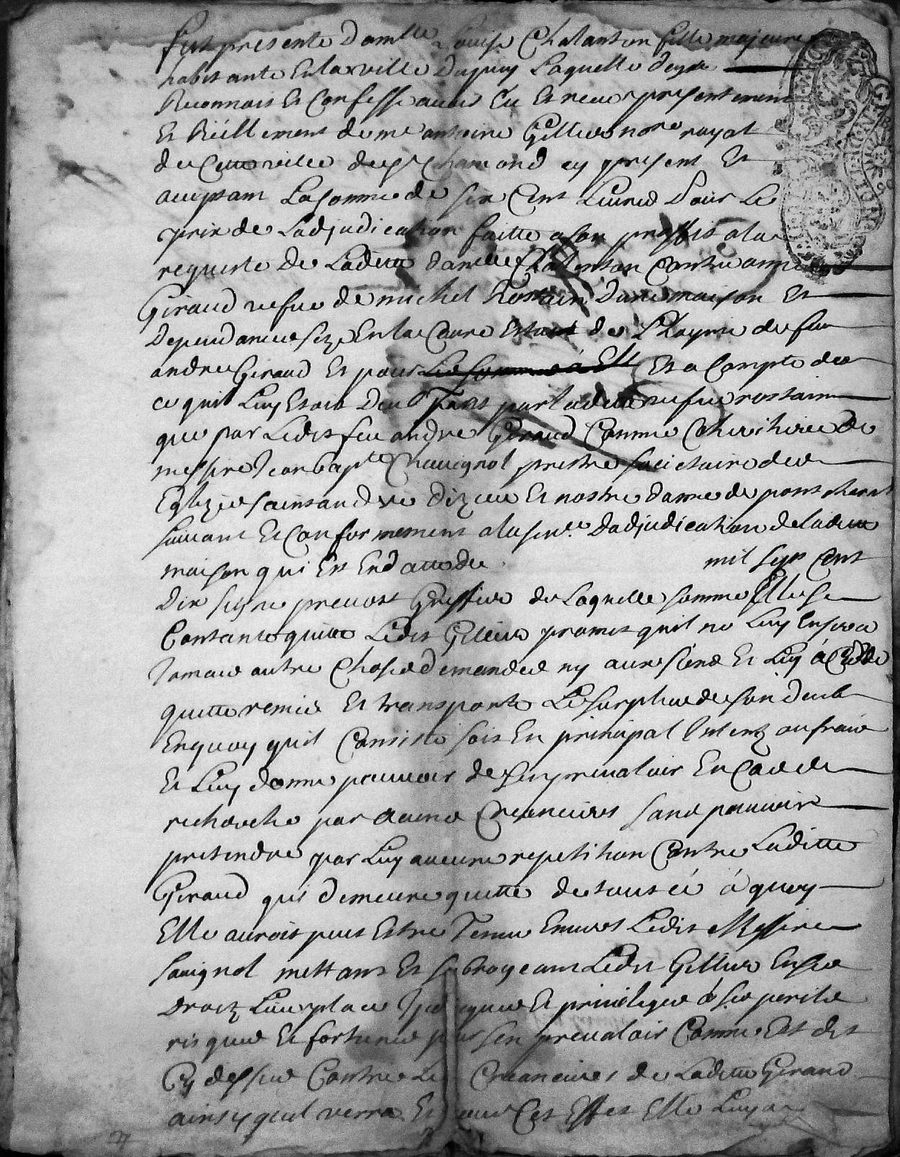 fut presente damlle Louise Chalanton fille majeure
habitante En la ville Dupuy Laquelle de gre
Reconnait Et Confesse avoir Eu Et receu presentement
Et Réellement de me antoine Gellier nore royal
de Cette ville de st Chamond cy present Et
acceptant La somme de six Cent Livres Pour Le
prix de Ladjudication faitte a son proffit a la
requeste de Laditte damlle Chalanton Contre anne
Giraud vefve de michel Rostain Dune maison Et
Dependances size En la Coure de feu
andre Giraud Et pour Et a Compte de
ce qui Luy Estoit Deu Tant par laditte vefve rostain
que par Ledit feu andré Giraud Comme Coheritiere de
messire Jean bapte Chavignol prestre societaire des
Eglizes saint andre Et nostre dame de pont
suivant Et Conformement a la sence Dadjudication de Laditte
maison qui Est En datte du mil sept Cent
Dix sept prevost Greffier de Laquelle somme Elle se
Contante quitte Ledit Gellier promet quil ne Luy En sera
Jamais autre Chose demandée ny aux siens Et Luy à Cedde
quitte remis Et transporte Le surplus de son deub
En quoy quil Consiste soit En principal Interetz ou fraix
Et Luy donne pouvoir de sen prevaloir En Cas de
recherche par Creanciers sans pouvoir
pretendre par Luy aucune repetition Contre Laditte
Giraud qui demeure quitte de tout ce à quoy
Elle auroit peut Estre Tenue Envers Ledit Messire
savignol mettant Et subrogeant Ledit Gellier En ses
Droitz Lieu place hypoteque Et privilege à ses perils
risques Et fortunes pour sen prevaloir Comme Est dit
Cy dessus Contre Les Creanciers de Laditte Giraud
ainsy quil verra Et Cet Effet Elle Luy a